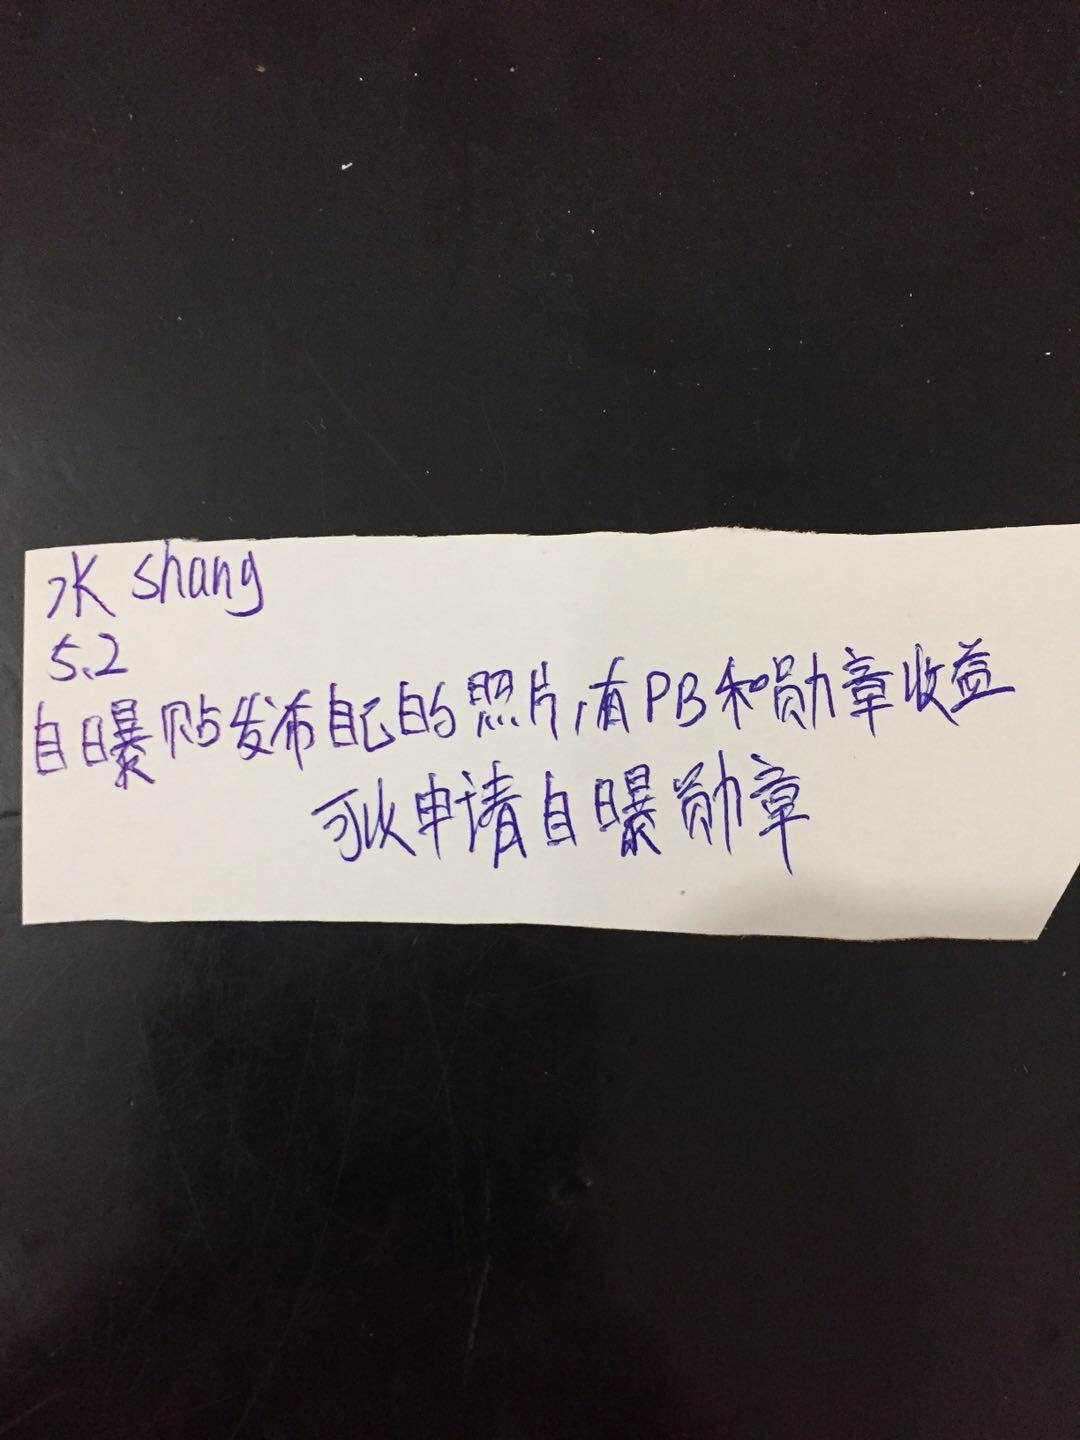 水 shang
5.2
自曝贴发布自己的照片,有PB和勋章收益
可以申请自曝勋章